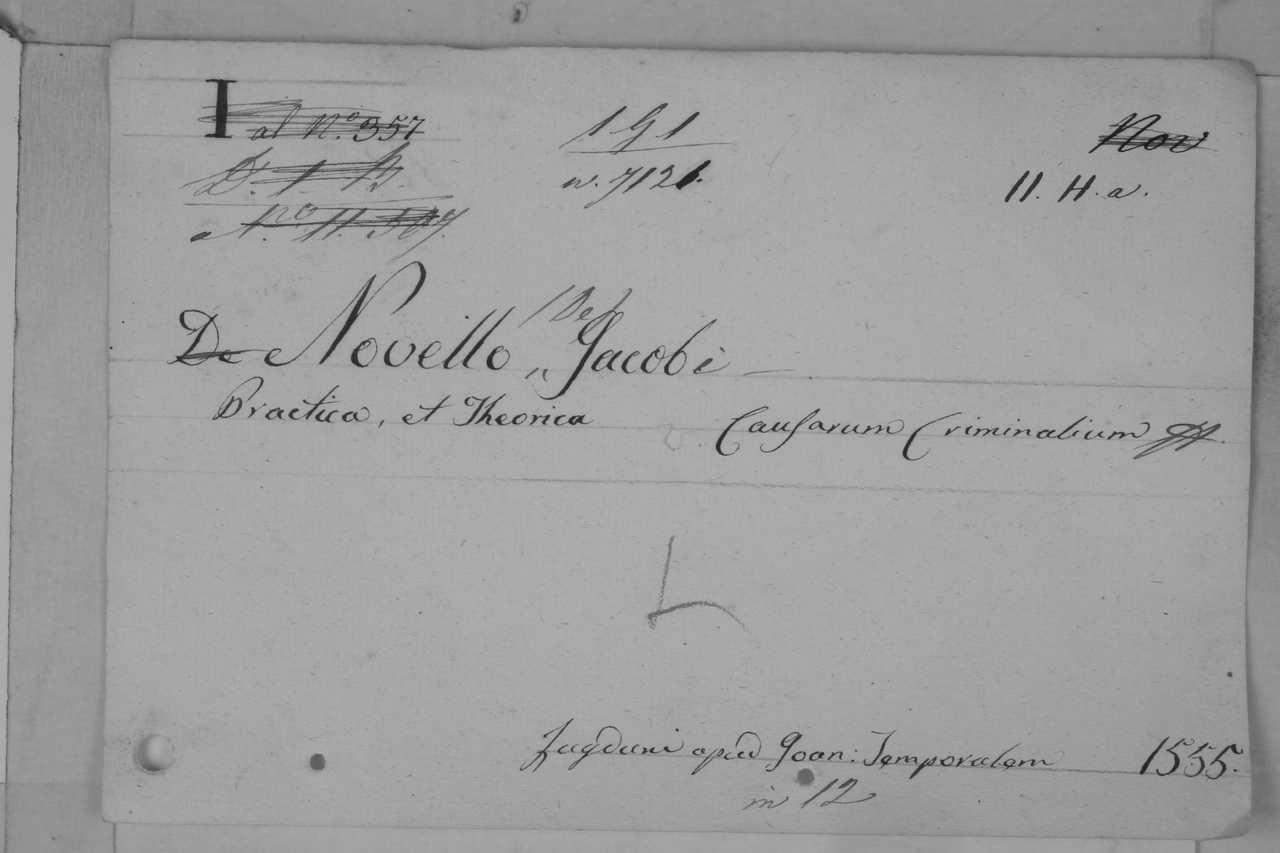 I
al No. 357
1 G 1
Nov
D. 1 B.
n. 7121.
11. H. a.
No. 11.
(De)
De Novello „ Jacobi
Practica, et Theorica Causarum Criminalium
L
Lugduni apud Joan: Temporalem 1555.
in 12